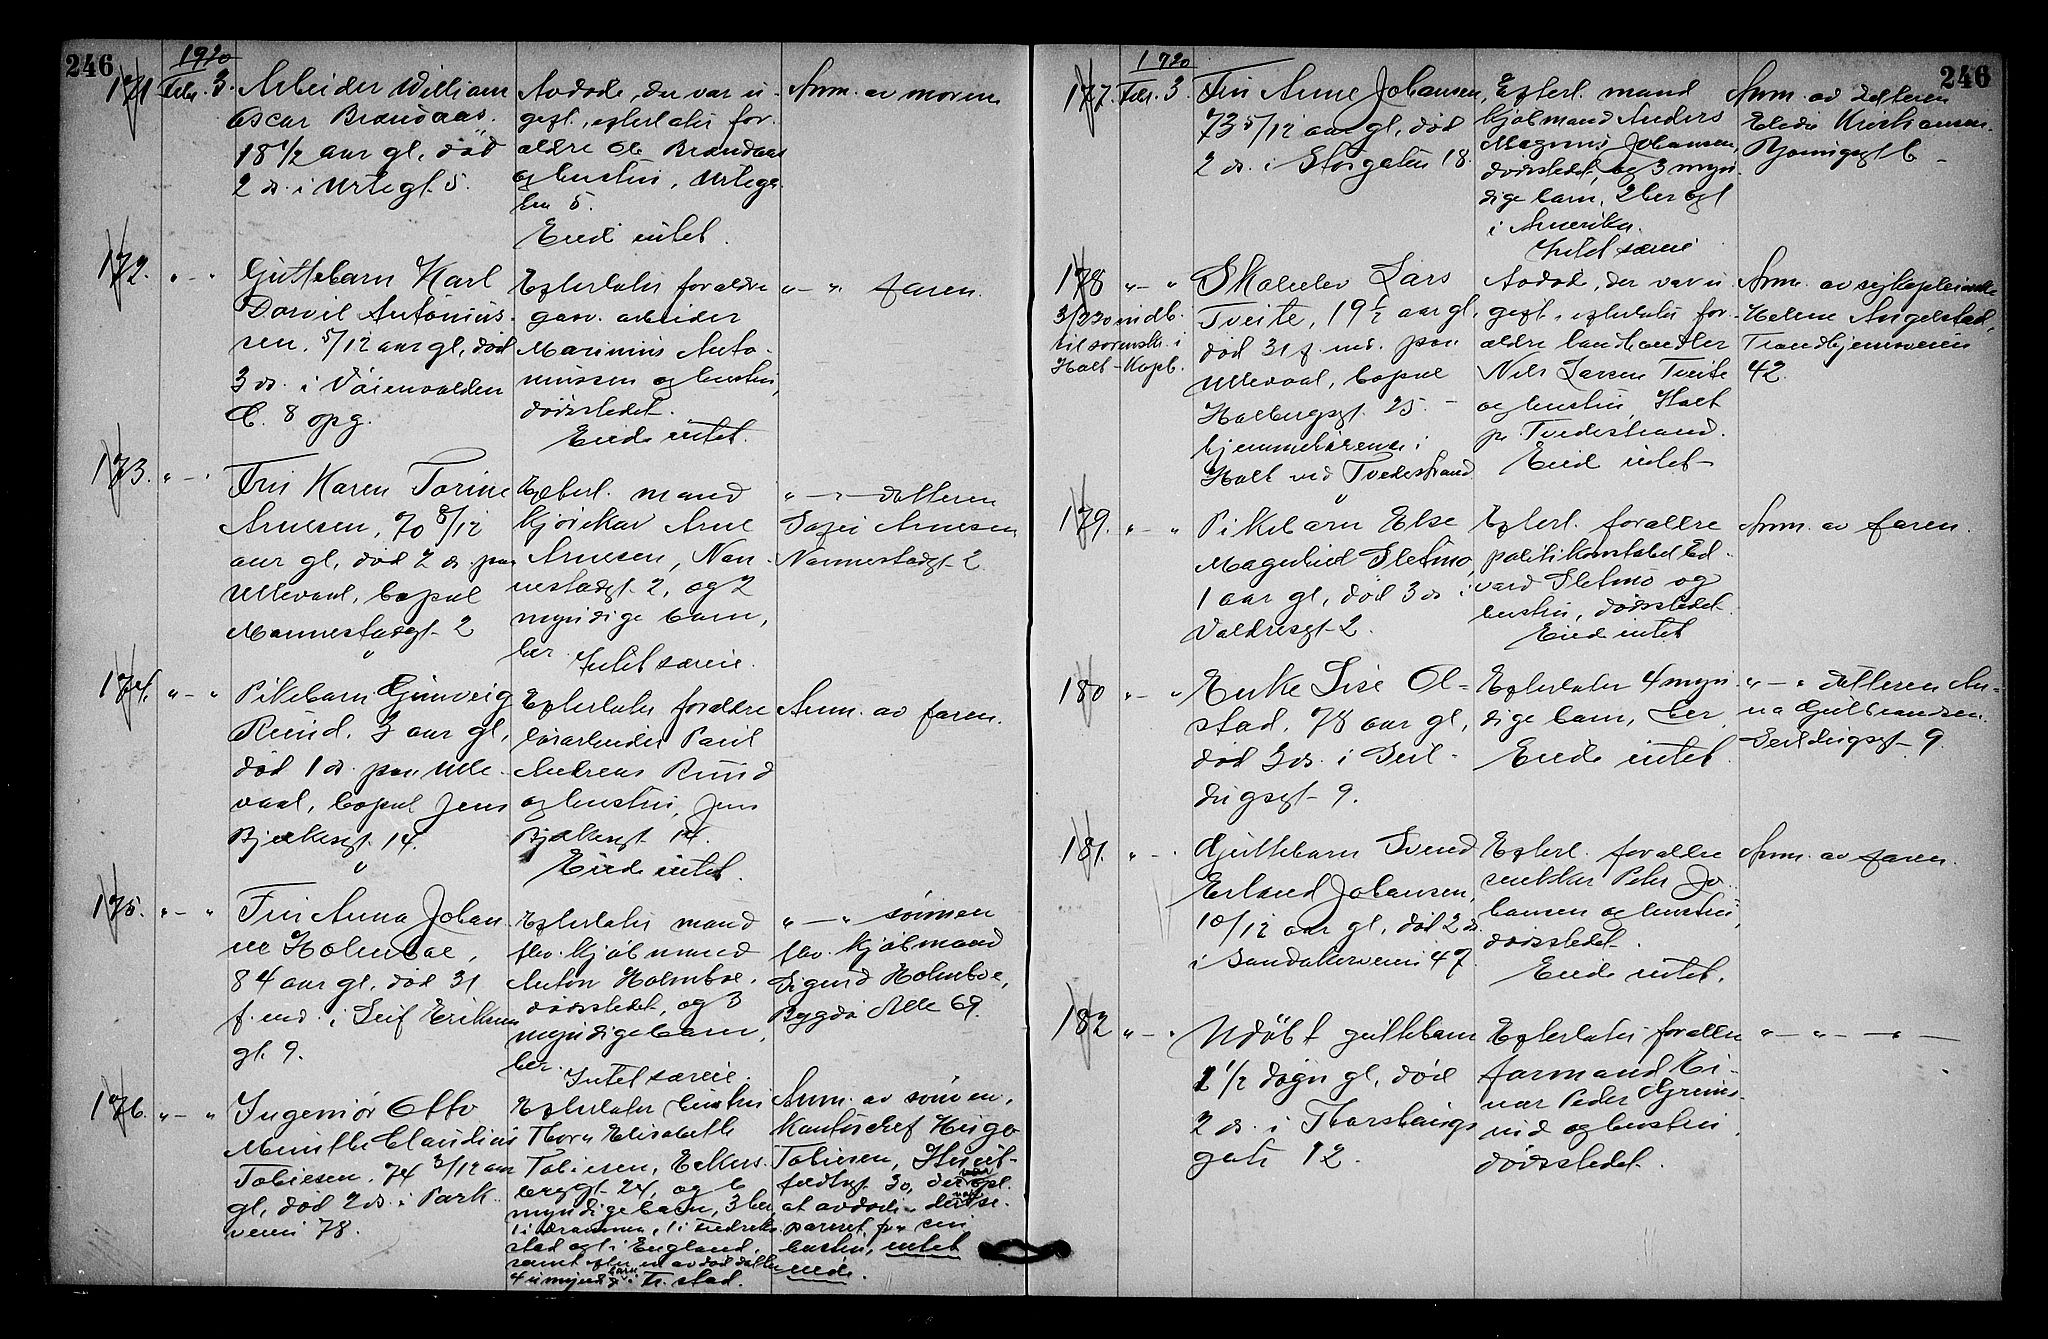 246
1920
171 Febr. 3.
Arbeider William
Oscar Brandaas.
18 1/2 aar gl. død
2 ds. i Urtegt. 5.
Avdøde, der var u-
gift, efterlater for-
ældre Ole Brandaas
og hustru, Urtega-
ten 5.
Eied intet.
Anm. av moren
172. " - "
Guttebarn Karl
Antonius-
sen, 5/12 aar gl, død
3 ds. i Vøienvolden
C. 8 opg.
Efterlater forældre
garv. arbeider
Marinius Anto-
niussen og hustru,
dødsstedet.
Eiede intet.
" - " faren.
173. " - "
Fru Karen Torine
Arnesen, 70 8/12
aar gl, død 2 ds. paa
Ullevaal, bopæl
Nannestadgt. 2
"
Efterl. mand
kjørekar Arne
Arnesen, Nan-
nestadgt. 2, og 2
myndige barn,
her. Intet særeie.
" - " datteren
Arnesen
Nannestadgt. 2.
174. " - "
Pikebarn Gunveig
Ruud. 3 aar gl,
død 1 ds. paa Ulle-
vaal, bopæl Jens
Bjelkesgt. 14.
"
Efterlater forældre
Paul
Andreas Ruud
og hustru, Jens
Bjelkesgt. 14.
Eiede intet.
Anm. av faren.
175. " - "
Fru Anna Johan-
ne Holmboe,
84 aar gl, død 31
f. md. i Leif Eriksøns
gt. 9.
Efterlater mand
fhv. kjøbmand
Anton Holmboe,
dødsstedet, og 3
myndige barn,
her.
Intet særeie.
" - " sønnen
fhv. kjøbmand
Sigurd Holmboe,
Bygdø Alle 69.
176. " - "
Ingeniør Otto
Munthe Claudius
Tobiesen. 74 3/12 aar
gl, død 2 ds. i Park-
veien 78.
Efterlater hustru
Thora Elisabeth
Tobiesen, Eckers-
bergsgt. 24, og 6
myndige barn, 3 her,
1 i Drammen, 1 i Fredrik-
stad og 1 i England,
samt efter en avdød datter
4 umynd. barn i Fr. stad.
Anm. av sønnen,
kontorchef Hugo
Tobiesen,
30, der opl.
at avdøde, der var se-
pareret fra sin
hustru, intet
eiede.
246
1920
177. Febr. 3.
Fru Anne Johansen,
73 5/12 aar gl, død
2 ds. i Storgaten 18.
Efterl. mand
kjøbmand Anders
Magnus Johansen,
dødsstedet, og 3 myn-
dige barn, 2 her og 1
i Amerika.
Intet særeie
Anm. av datteren
Kristiansen.
6
178 " - "
3/2 20 indb.
til sorenskr. i
Holt - Kopb.
Skoleelev Lars
Tveite, 19 1/2 aar gl,
død 31 f. md. paa
Ullevaal, bopæl
Holbergsgt. 25. -
hjemmehørende i
Holt ved Tvedestrand
"
Avdød, der var u-
gift, efterlater for-
ældre landhandler
Nils Larsen Tveite
og hustru, Holt
pr. Tvedestrand.
Eied intet
Anm. av sykepleierske
Helene Angelstad,
Trondhjemsveien
42.
179. " - "
Pikebarn Else
Magnhild Sletmo,
1 aar gl, død 3 ds. i
Valdresgt. 2.
Efterl. forældre
politikonstabel Ed-
vard Sletmo og
hustru, dødsstedet.
Eied intet
Anm. av faren.
180 " - "
Enke Lise Ol-
stad, 78 aar gl,
død 3 ds. i Seil-
dugsgt. 9.
Efterlater 4 myn-
dige barn, her.
Eiede intet.
" - " datteren An-
na Gulbrandsen.
Seildugsgt. 9.
181. " - "
Guttebarn Svend
Erland Johansen,
10/12 aar gl, død 2 ds.
i Sandakerveien 47.
Efterl. forældre
snekker Peter Jo-
hansen og hustru,
dødsstedet.
Eiede intet.
Anm. av faren.
182 " - "
Udøbt guttebarn
1 1/2 døgn gl, død
2 ds. i Thorshaugs
gate 12.
Efterlater forældre
formand Ei-
nar Peder Grims-
rud og hustru,
dødsstedet.
" - " - " -